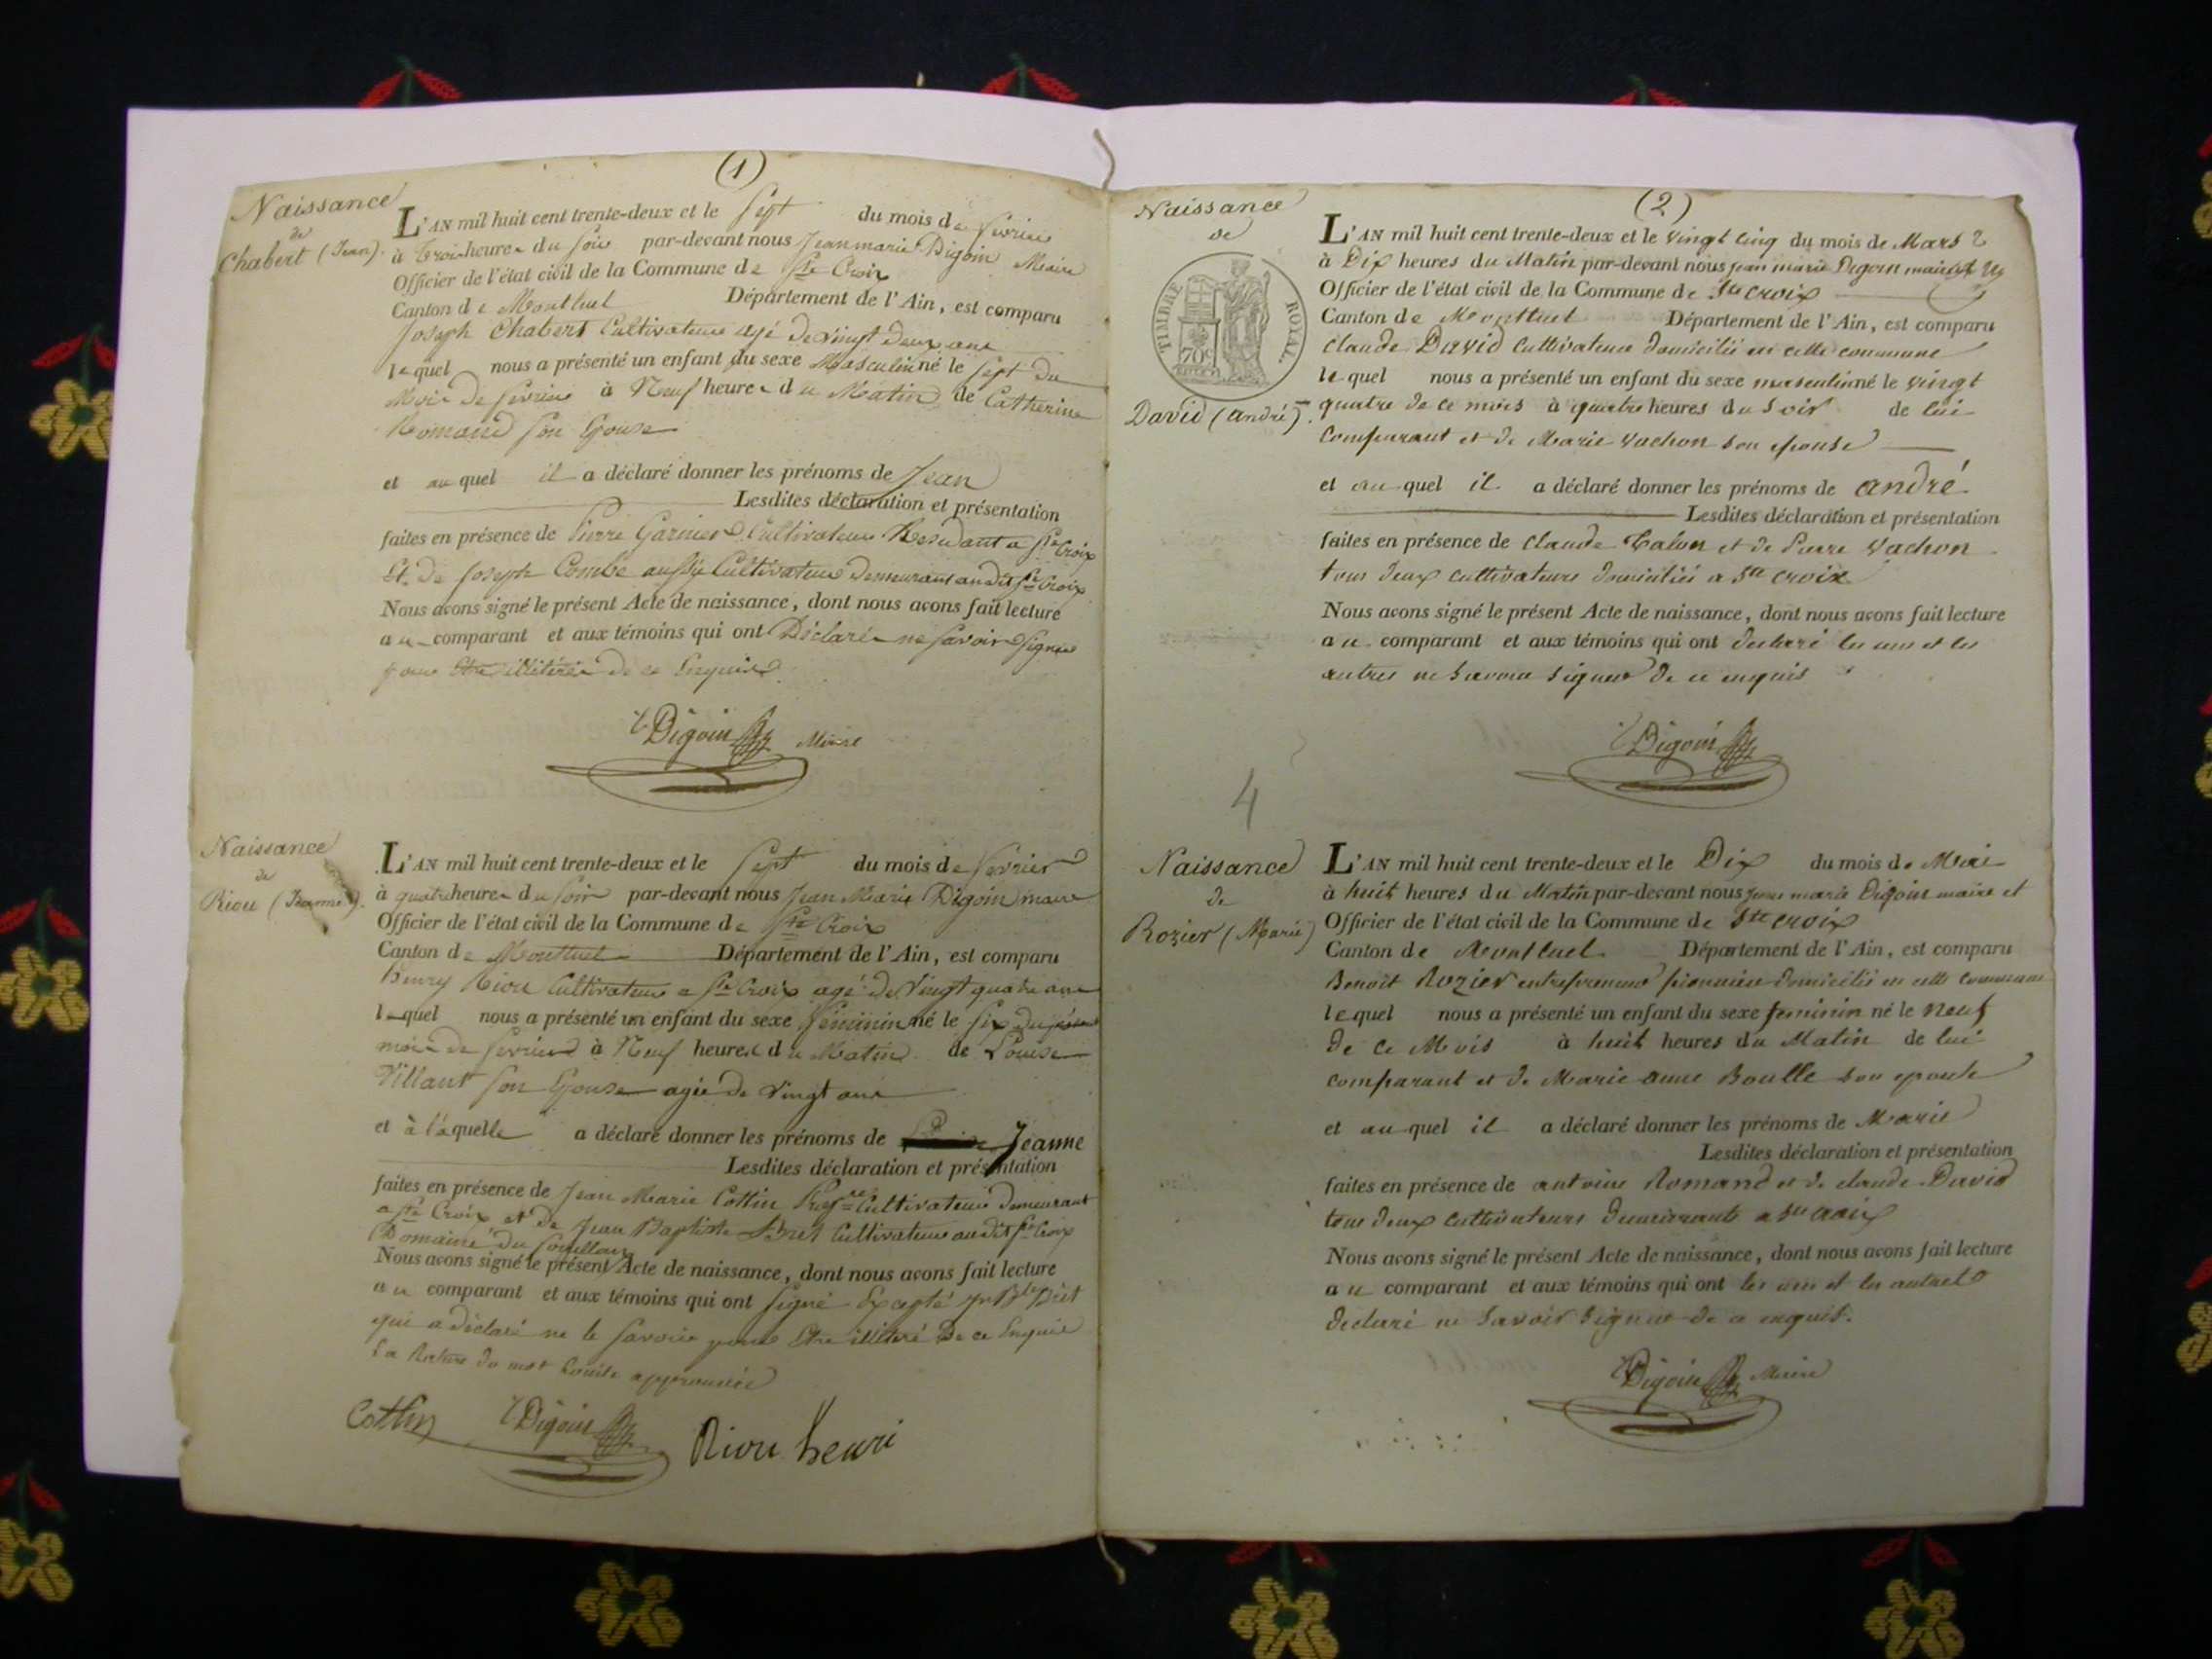 (1)
Naissance
de
Chabert (Jean).
L'AN mil huit cent trente-deux et le Sept du mois de fevrier
à trois heures du Soir par-devant nous Jean marie Digoin Maire
Officier de l'état civil de la Commune de Ste Croix
Canton de Montluel Département de l'Ain, est comparu
Joseph Chabert Cultivateur agé de vingt deux ans
lequel nous a présenté un enfant du sexe Masculin né le sept du
Mois de fevrier à Neuf heures du Matin de Catherine
Romand son Epouse
et au quel il a déclaré donner les prénoms de Jean
Lesdites déclaration et présentation
faites en présence de Pierre Garnier Cultivateur Residant a Ste Croix
Et de Joseph Combe aussy Cultivateur demeurant audit Ste Croix
Nous avons signé le présent Acte de naissance, dont nous avons fait lecture
au comparant et aux témoins qui ont Déclarés ne savoir signer
pour Etre illitérés de ce Enquis.
Digoin Maire
Naissance
de
Riou (Jeanne).
L'AN mil huit cent trente-deux et le Sept du mois de fevrier
à quatre heures du soir par-devant nous Jean Marie Digoin maire
Officier de l'état civil de la Commune de Ste Croix
Canton de Montluel Département de l'Ain, est comparu
henry Riou Cultivateur a Ste Croix agé de Vingt quatre ans
lequel nous a présenté un enfant du sexe féminin né le six du présent
mois de fevrier à Neuf heures du Matin de Louise
Villant son Epouse agée de vingt ans
et à laquelle a déclaré donner les prénoms de Jeanne
Lesdites déclaration et présentation
faites en présence de Jean Marie Cottin Cultivateur demeurant
a Ste Croix et de Jean Baptiste Bret Cultivateur audit Ste Croix
Domaine du
Nous avons signé le présent Acte de naissance, dont nous avons fait lecture
au comparant et aux témoins qui ont signé Excepté Jn Bte Bret
qui a déclaré ne le savoir pour Etre illitéré De ce Enquis
La rature du mot Louise approuvée
Cottin Digoin Riou henri
(2)
Naissance
de
TIMBRE ROYAL
70c
David (andré).
L'AN mil huit cent trente-deux et le vingt cinq du mois de Mars
à Dix heures du Matin par-devant nous jean marie Digoin maire et
Officier de l'état civil de la Commune de Ste croix
Canton de Montluel Département de l'Ain, est comparu
claude David cultivateur domicilié en cette commune
lequel nous a présenté un enfant du sexe masculin né le vingt
quatre de ce mois à quatre heures du soir de lui
comparant et de Marie vachon son epouse
et au quel il a déclaré donner les prénoms de andré
Lesdites déclaration et présentation
faites en présence de claude Talon et de Pierre vachon
tous deux cultivateurs domiciliés a Ste croix
Nous avons signé le présent Acte de naissance, dont nous avons fait lecture
au comparant et aux témoins qui ont declaré les uns et les
autres ne savoir signer de ce enquis
Digoin
4
Naissance
de
Rozier (Marie)
L'AN mil huit cent trente-deux et le Dix du mois de Mai
à huit heures du Matin par-devant nous jean marie Digoin maire et
Officier de l'état civil de la Commune de Ste croix
Canton de Montluel Département de l'Ain, est comparu
Benoit Rozier entrepreneur domicilié en cette commune
lequel nous a présenté un enfant du sexe feminin né le neuf
de ce Mois à huit heures du Matin de lui
comparant et de Marie anne Boulle son epouse
et au quel il a déclaré donner les prénoms de Marie
Lesdites déclaration et présentation
faites en présence de antoine Romand et de claude David
tous deux cultivateurs demeurants a Ste croix
Nous avons signé le présent Acte de naissance, dont nous avons fait lecture
au comparant et aux témoins qui ont les uns et les autres
declaré ne savoir signer de ce enquis.
Digoin Maire